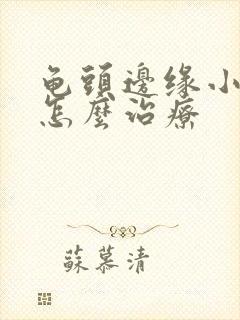 龟頭邊缘小
怎麼治療
蘇慕清